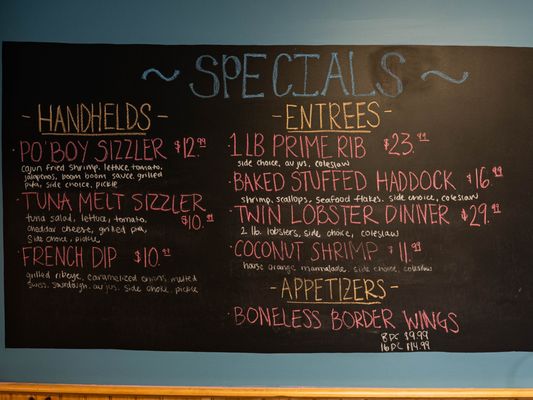 ~ SPECIALS ~
- HANDHELDS -
· PO'BOY SIZZLER $12.99
cajun fried shrimp, lettuce, tomato,
jalapenos, boom boom sauce, grilled
pita, side choice, pickle
· TUNA MELT SIZZLER
$10.99
tuna salad, lettuce, tomato,
cheddar cheese, grilled pita,
side choice, pickle
· FRENCH DIP $10.99
grilled ribeye, caramelized onions, melted
swiss, sourdough, au jus, side choice, pickle
- ENTREES -
· 1 LB PRIME RIB $23.99
side choice, au jus, coleslaw
· BAKED STUFFED HADDOCK $16.99
shrimp, scallops, seafood flakes, side choice, coleslaw
· TWIN LOBSTER DINNER $29.99
2 lb. lobsters, side choice, coleslaw
· COCONUT SHRIMP $11.99
house orange marmalade, side choice, coleslaw
- APPETIZERS -
· BONELESS BORDER WINGS
8 PC $9.99
16 PC $14.99